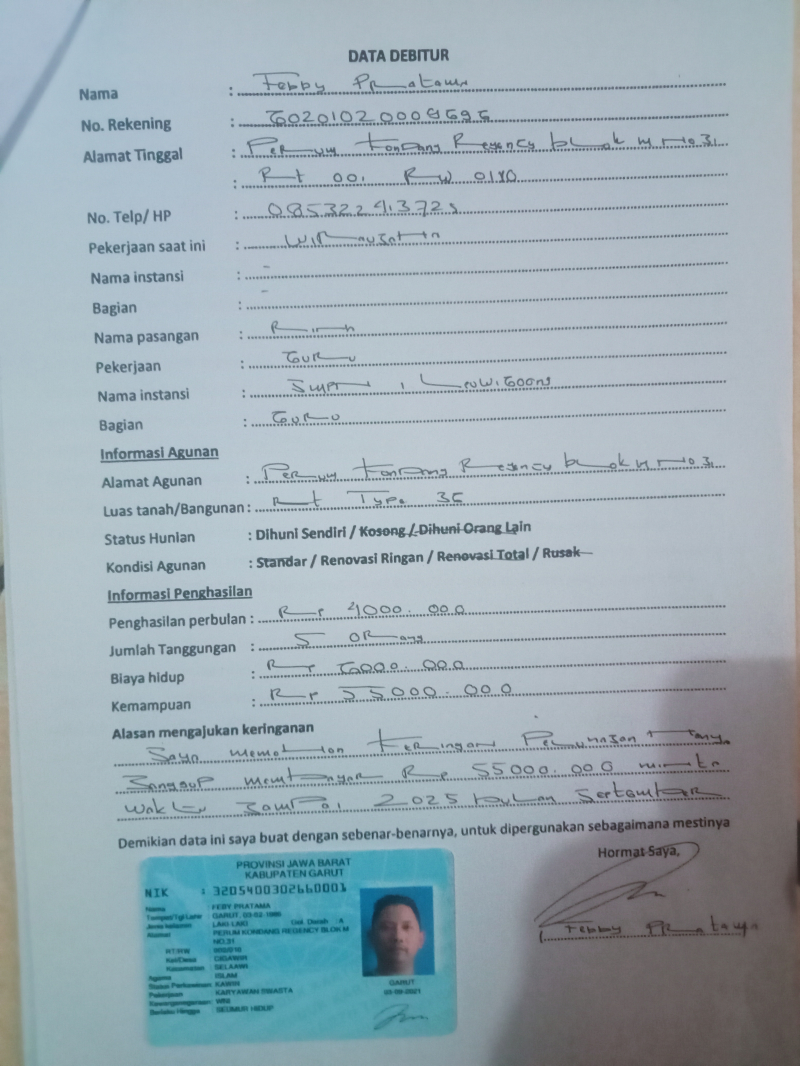 DATA DEBITUR
Nama : Febby Pratama
No. Rekening :
Alamat Tinggal : Perum Kondang Regency blok M No 31
: Rt 001 Rw
No. Telp/ HP :
Pekerjaan saat ini : Wirausaha
Nama instansi : -
Bagian : -
Nama pasangan :
Pekerjaan : Guru
Nama instansi : SMPN 1 Leuwigoong
Bagian : Guru
Informasi Agunan
Alamat Agunan : Perum Kondang Regency blok M No 31
Luas tanah/Bangunan : Type 36
Status Hunian : Dihuni Sendiri / Kosong / Dihuni Orang Lain
Kondisi Agunan : Standar / Renovasi Ringan / Renovasi Total / Rusak
Informasi Penghasilan
Penghasilan perbulan : Rp 4000.000
Jumlah Tanggungan : 5 Orang
Biaya hidup : Rp
Kemampuan : Rp 55000.000
Alasan mengajukan keringanan
Saya memohon keringan Pelunasan
Sanggup membayar Rp 55000.000 minta
waktu Sampai 2025 bulan September
Demikian data ini saya buat dengan sebenar-benarnya, untuk dipergunakan sebagaimana mestinya
Hormat Saya,
Febby Pratama
PROVINSI JAWA BARAT
KABUPATEN GARUT
NIK : 3205400302660001
Nama FEBY PRATAMA
Tempat/Tgl Lahir GARUT,
Jenis kelamin LAKI-LAKI Gol. Darah : A
Alamat PERUM KONDANG REGENCY BLOK M
NO.31
RT/RW
Kel/Desa
Kecamatan SELAAWI
Agama ISLAM
Status Perkawinan: KAWIN
Pekerjaan KARYAWAN SWASTA
Kewarganegaraan: WNI
Berlaku Hingga SEUMUR HIDUP
GARUT